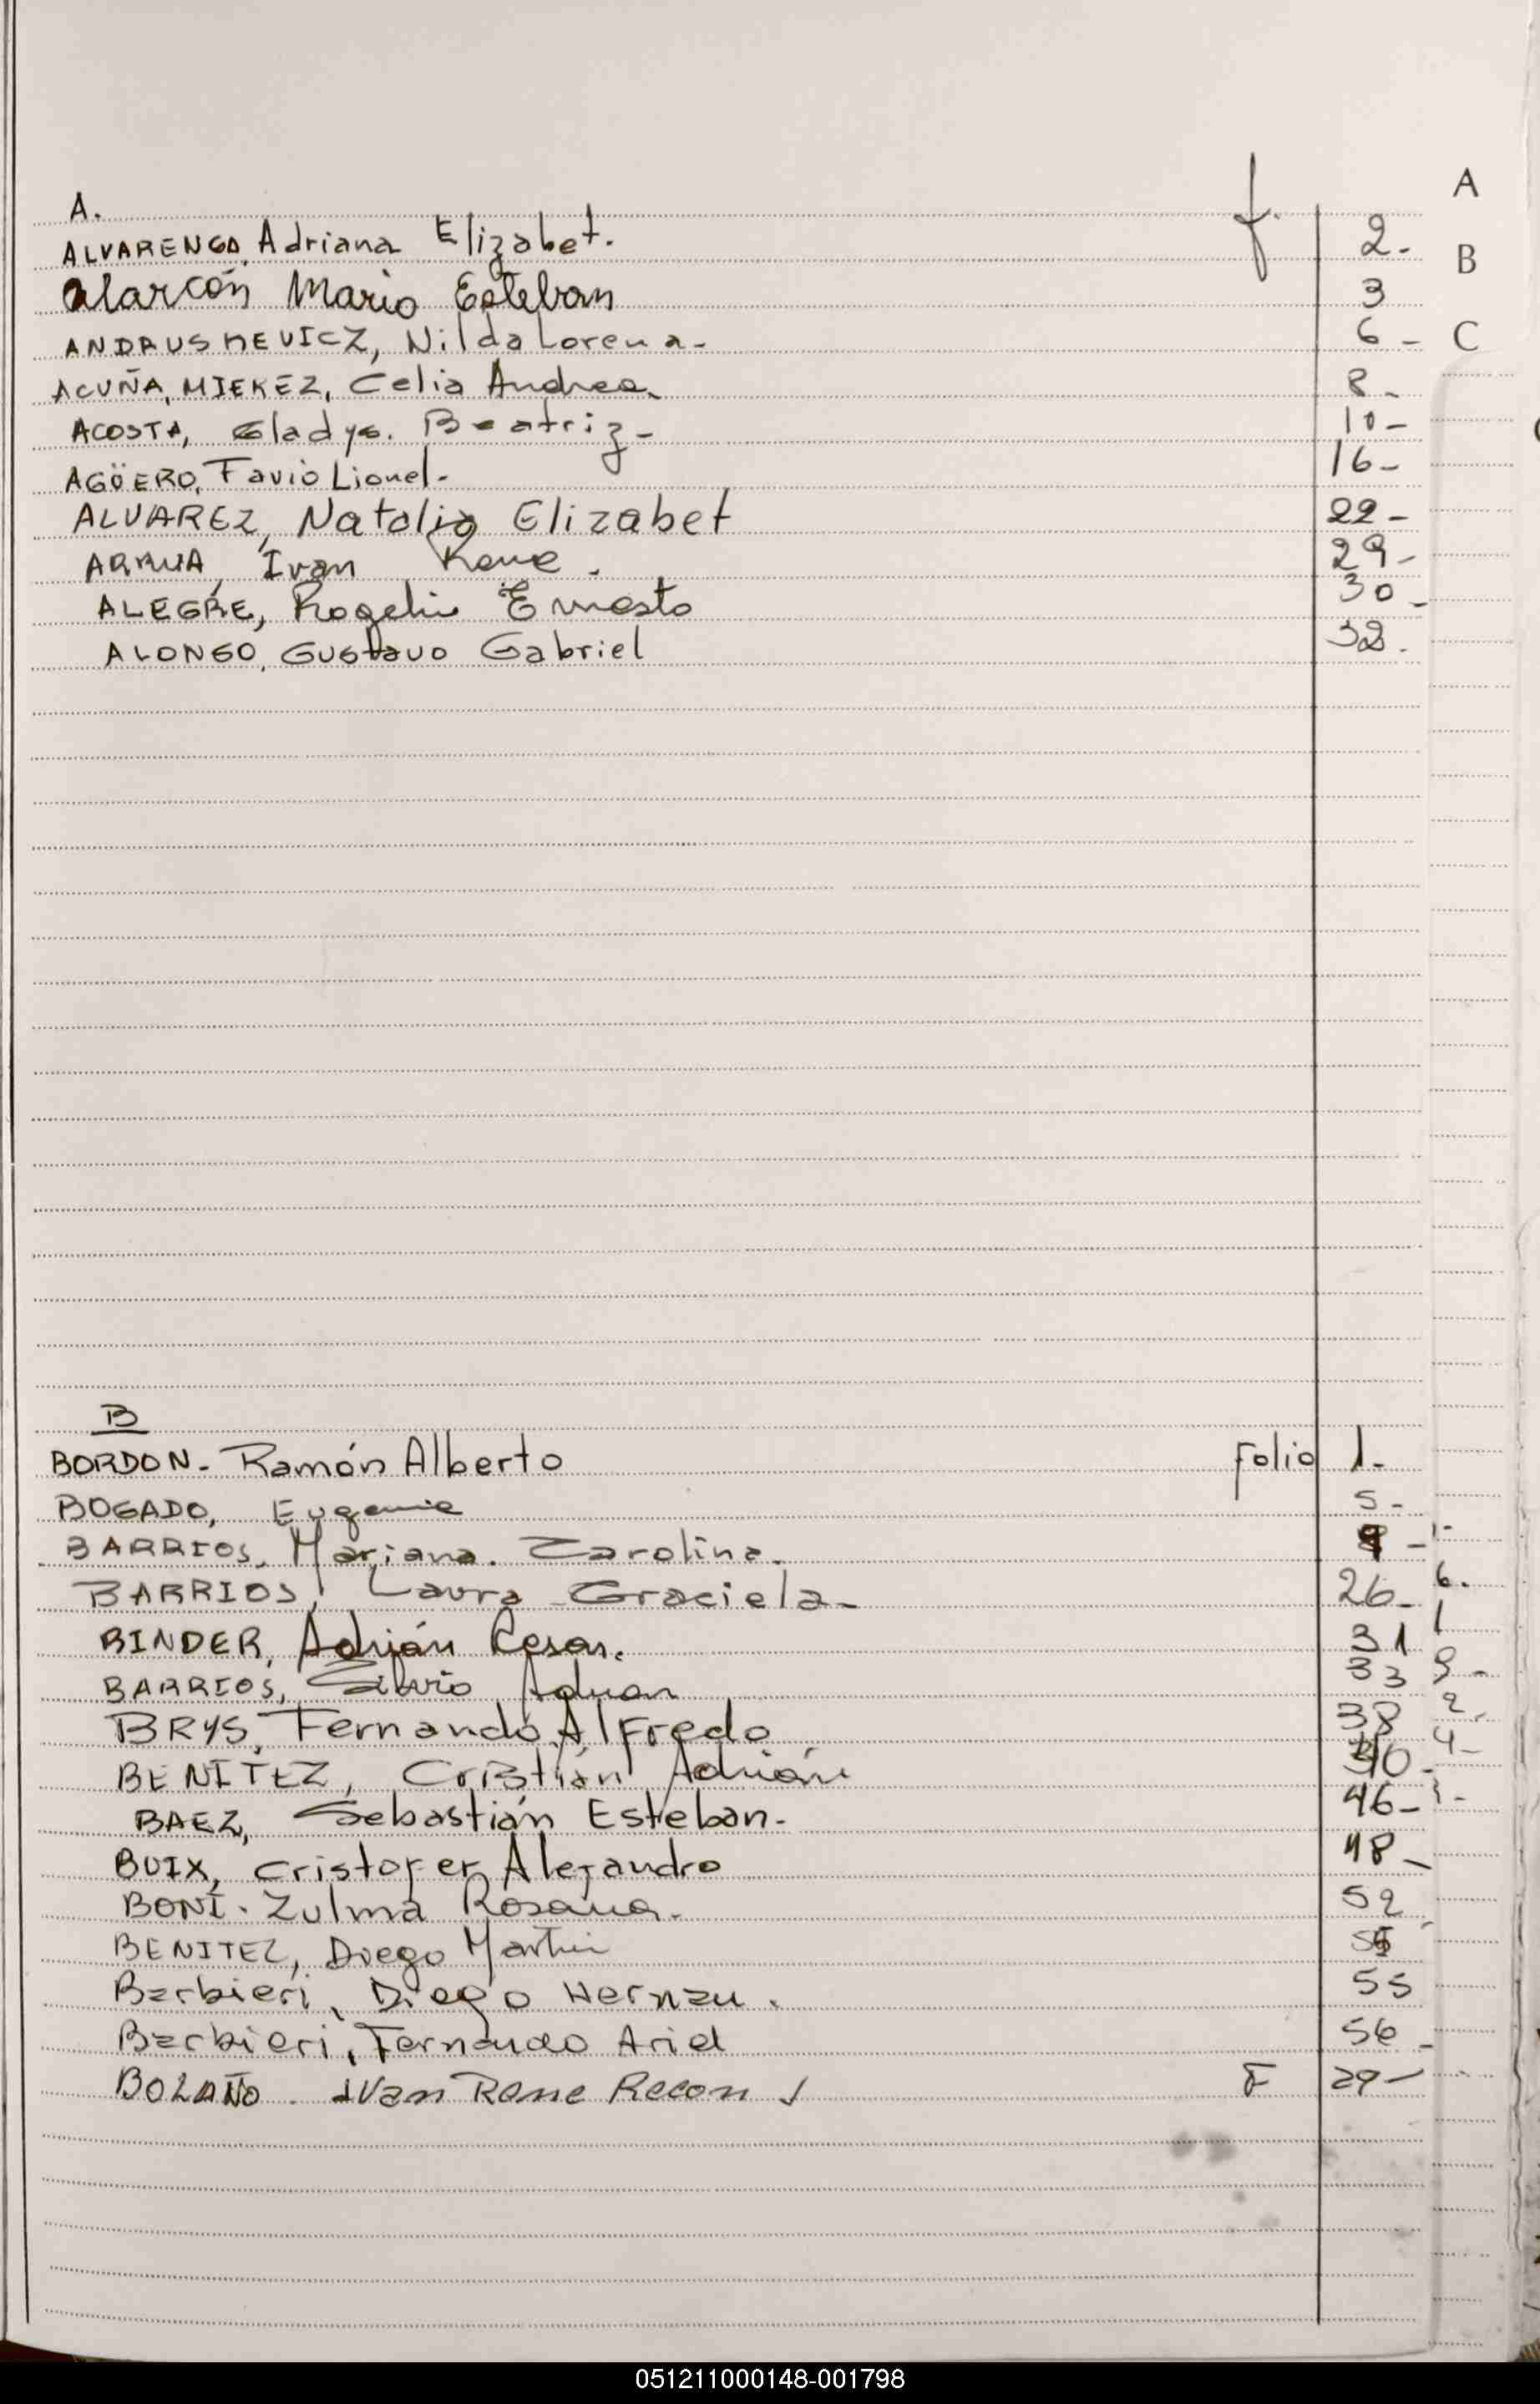 A. f. A
ALVARENGA, Adriana Elizabet. 2-
B
Alarcón Mario Esteban 3
ANDRUSKEVICZ, Nilda Lorena- 6- C
ACUÑA, MIEREZ, Celia Andrea. 8-
ACOSTA, Gladys. Beatriz- 10-
AGÜERO, Favio Lionel- 16-
ALVAREZ, Natalia Elizabet 22-
ARRUA, Ivan Rene. 29-
ALEGRE, Rogelio Ernesto 30-
ALONSO, Gustavo Gabriel 32.
B
BORDON- Ramón Alberto Folio 1-
BOGADO, Eugenia 5-
BARRIOS, Mariana. Carolina. 9- 1-
BARRIOS, Laura Graciela- 26- 6.
BINDER, Adrián Cesar. 31 1
BARRIOS, Silvio Adrian 33 9-
BRYS, Fernando Alfredo 38 2.
BENÍTEZ, Cristián Adrián 40- 4-
BAEZ, Sebastián Esteban- 46-
BUIX, Cristofer Alejandro 48-
BONI. Zulma Rosana. 52
BENITEZ, Diego Martin
Barbieri, Diego Hernan. 55
Barbieri, Fernando Ariel 56-
BOLAÑO. Ivan Rene Recon F 29-
051211000148-001798